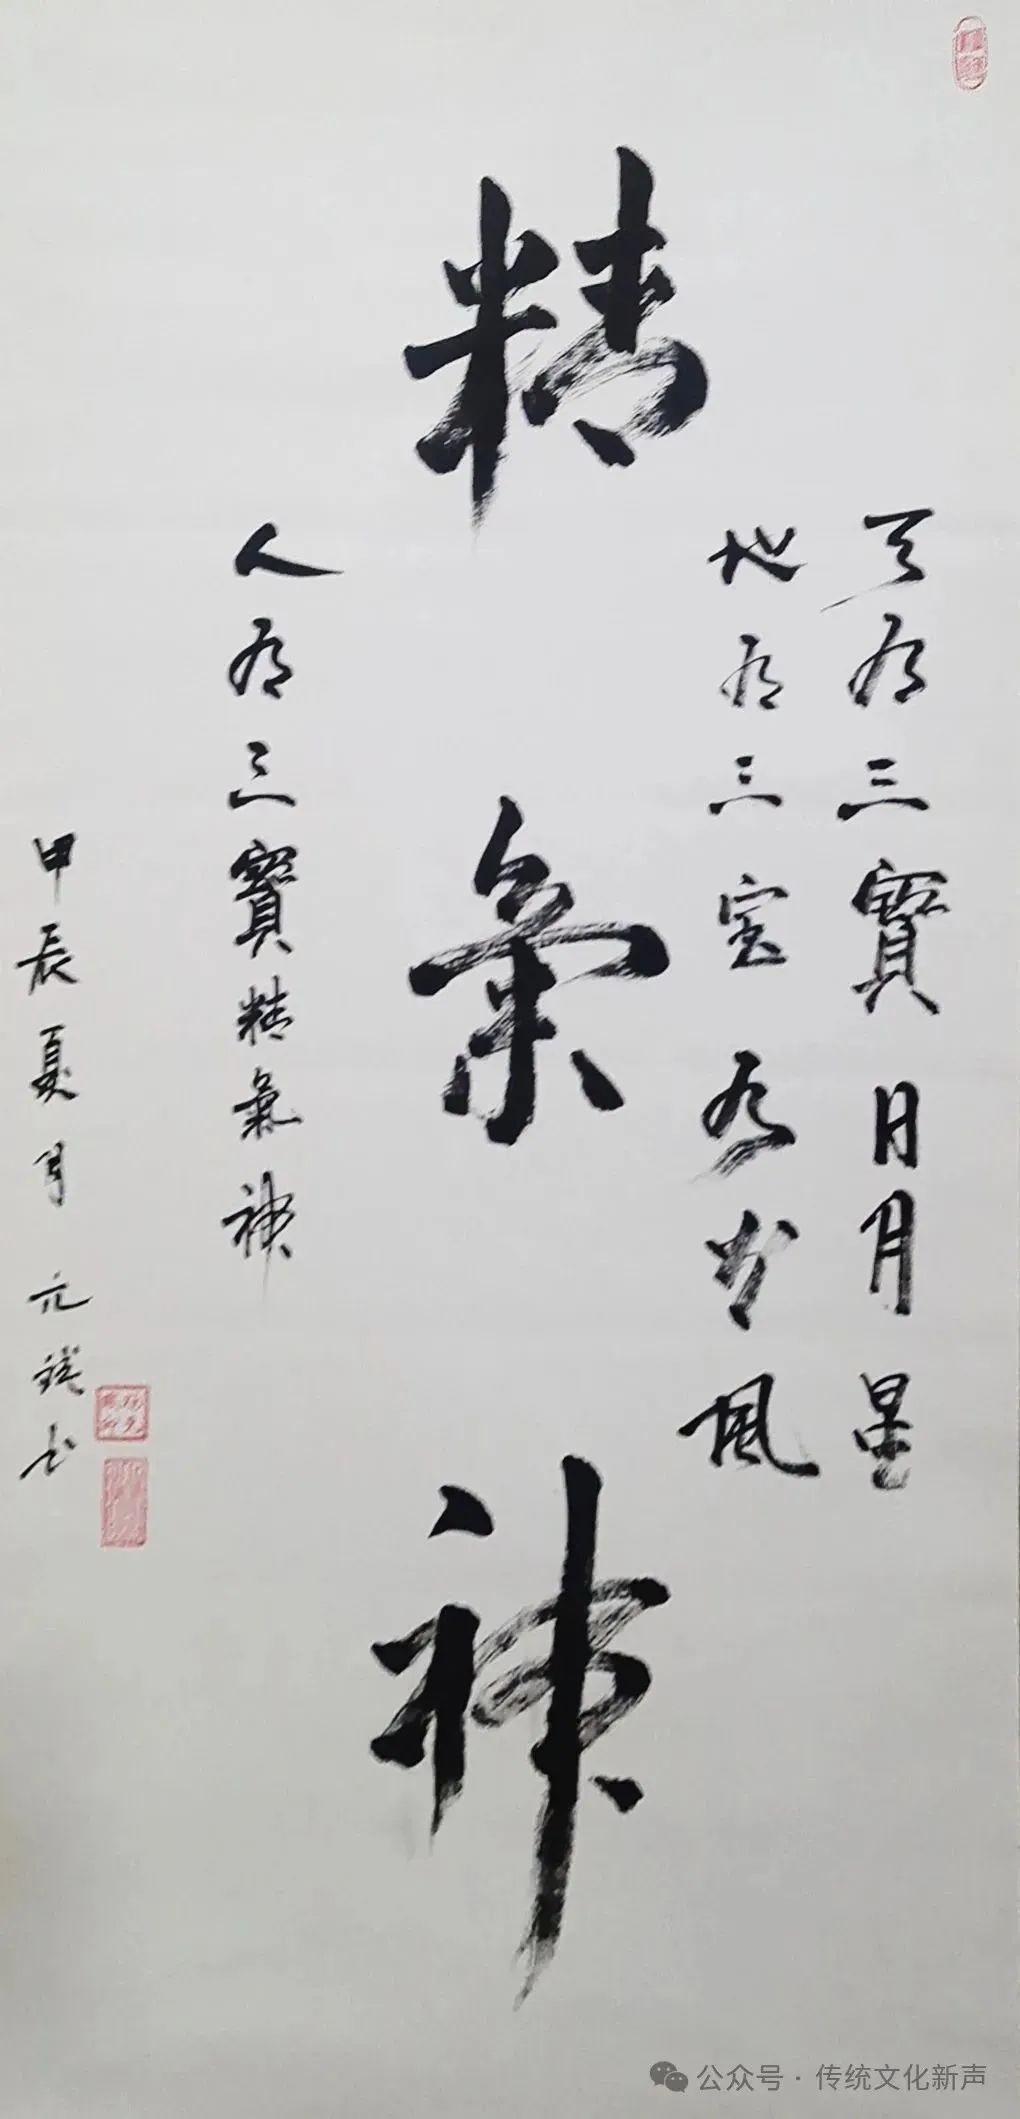 天有三寶日月星
地有三宝水火風
精氣神
人有三寶精氣神
甲辰夏月元书
公众号·传统文化新声